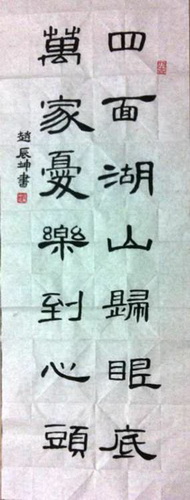 四面湖山歸眼底
萬家憂樂到心頭
趙辰坤書